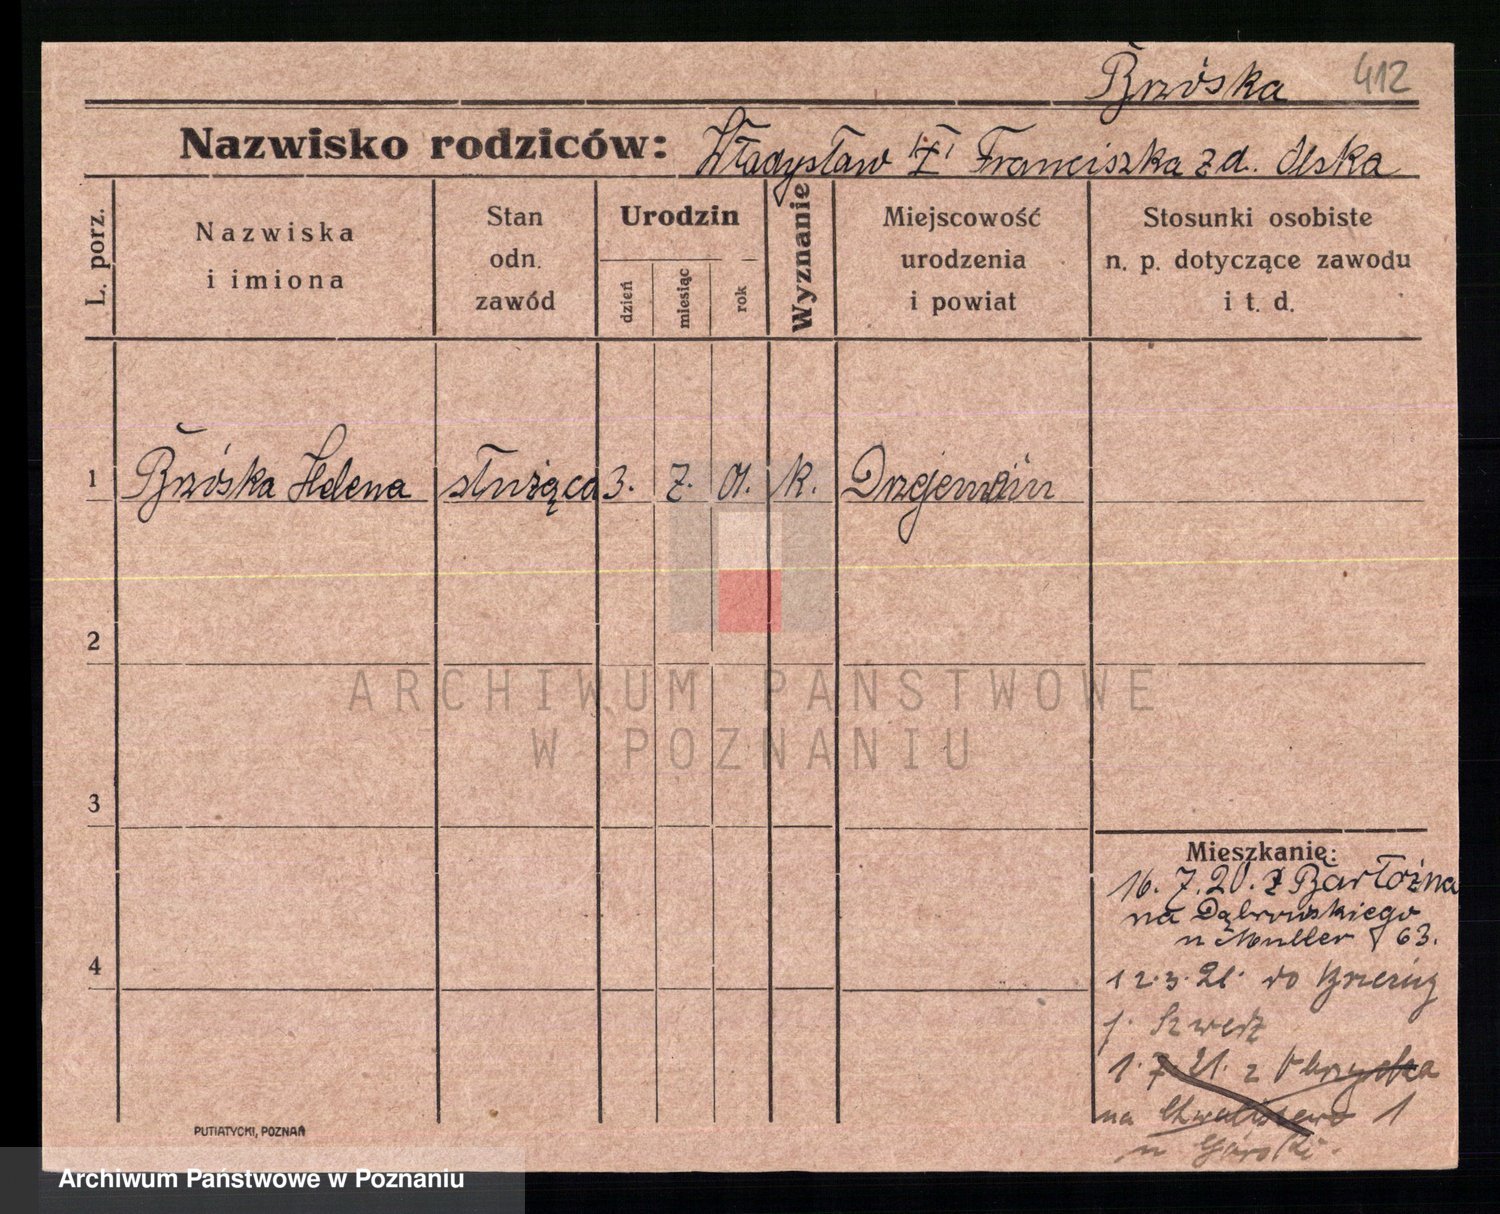 Brzóska 412
Nazwisko rodziców: Władysław Franciszka z d. Ilska
L. porz.
Nazwiska i imiona
Stan odn. zawód
Urodzin
dzień
miesiąc
rok
Wyznanie
Miejscowość urodzenia i powiat
Stosunki osobiste n. p. dotyczące zawodu i t. d.
1 Brzóska Helena służąca 3. 7. 01. k.
2
3
4
Mieszkanie:
16. 7. 20. z
na Dąbrowskiego
u Muller 63.
12. 3. 21. do
1. 7. 21. z Obrzycka
na Chwaliszewo 1
u Górski.
PUTIATYCKI, POZNAŃ
ARCHIWUM PAŃSTWOWE
W POZNANIU
Archiwum Państwowe w Poznaniu